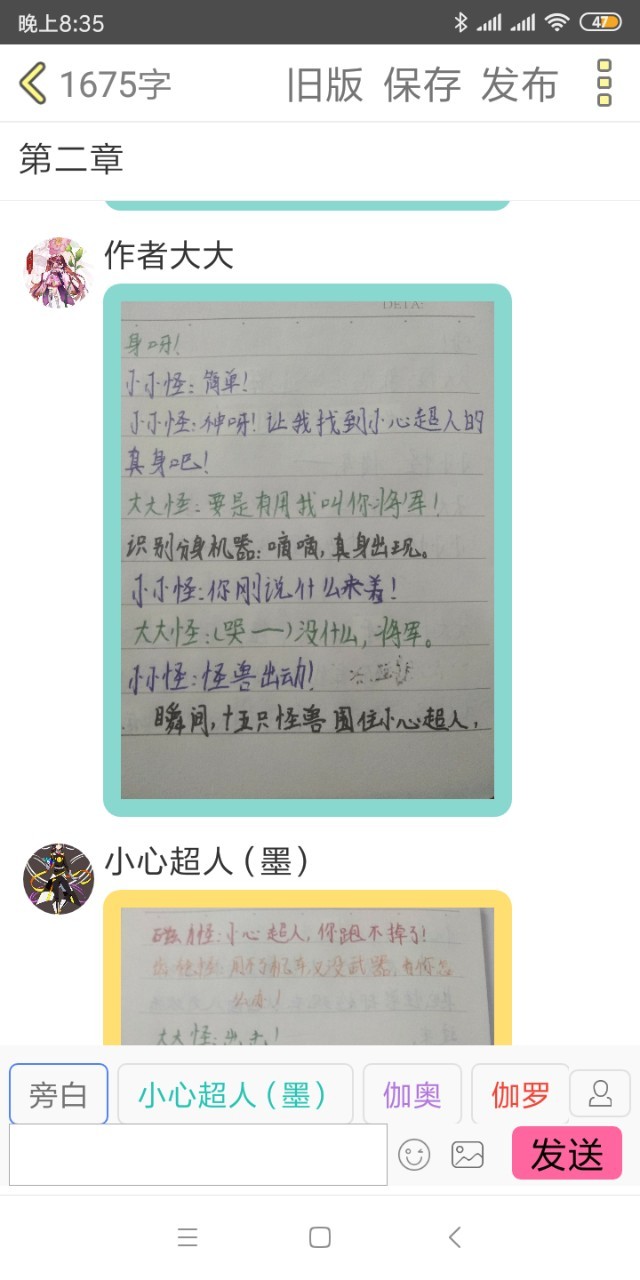 晚上8:35
47
1675字 旧版 保存 发布
第二章
作者大大
DETA:
身呀!
小小怪:简单!
小小怪:神呀!让我找到小心超人的
真身吧!
大大怪:要是有用我叫你将军!
识别分身机器:嘀嘀,真身出现。
小小怪:你刚说什么来着!
大大怪:(哭——)没什么,将军。
小小怪:怪兽出动!
瞬间,十五只怪兽围住小心超人,
小心超人(墨)
磁力怪:小心超人,你跑不掉了!
用不了机车又没武器,看你怎
么办!
大大怪:出击!
旁白 小心超人(墨) 伽奥 伽罗
发送